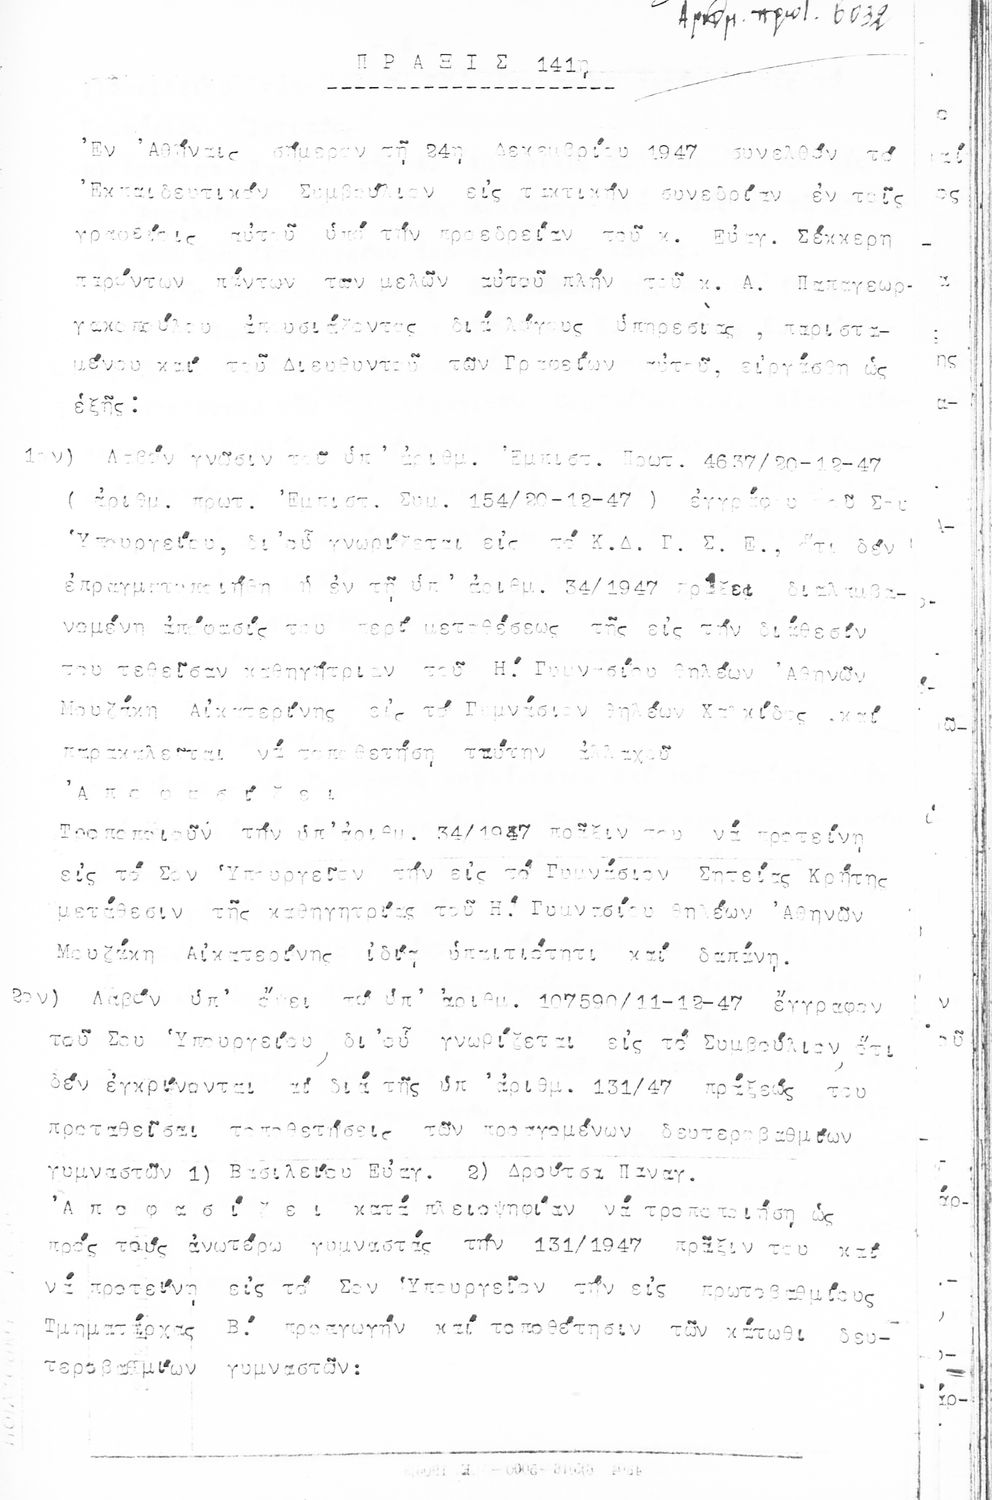 Αριθμ. πρωτ. 6032
Π Ρ Α Ξ Ι Σ 141η
Ἐν Ἀθήναις σήμερον τῇ 24η Δεκεμβρίου 1947 συνελθόν τό
Ἐκπαιδευτικόν Συμβούλιον εἰς τακτικήν συνεδρίαν ἐν τοῖς
γραφείοις αὐτοῦ ὑπό τήν προεδρείαν τοῦ κ. Εὐαγ. Σέκκερη
παρόντων πάντων των μελῶν αὐτοῦ πλήν τοῦ κ. Α. Παπαγεωρ-
γακοπούλου ἀπουσιάζοντος διά λόγους ὑπηρεσίας , παριστα-
μένου καί τοῦ Διευθυντοῦ τῶν Γραφείων αὐτοῦ, εἰργάσθη ὡς
ἑξῆς:
1ον) Λαβόν γνῶσιν τοῦ ὑπ' ἀριθμ. Ἐμπιστ. Πρωτ. 4637/20-12-47
( ἀριθμ. πρωτ. Ἐμπιστ. Συμ. 154/20-12-47 ) ἐγγράφου τοῦ Σου
Ὑπουργείου, δι'οὗ γνωρίζεται εἰς τό Κ.Δ. Γ. Σ. Ε., ὅτι δέν
ἐπραγματοποιήθη ἡ ἐν τῇ ὑπ' ἀριθμ. 34/1947 πράξει διαλαμβα-
νομένη ἀπόφασίς του περί μεταθέσεως τῆς εἰς τήν διάθεσίν
του τεθεῖσαν καθηγήτριαν τοῦ Η΄ Γυμνασίου θηλέων Ἀθηνῶν
Μουζάκη Αἰκατερίνης εἰς τό Γυμνάσιον θηλέων Χαλκίδος .καί
παρακαλεῖται νά τοποθετήση ταύτην ἀλλαχοῦ
Ἀ π ο φ α σ ί ζ ε ι
Τροποποιοῦν τήν ὑπ'ἀριθμ. 34/1947 πρᾶξιν του νά προτείνη
εἰς τό Σον Ὑπουργεῖον τήν εἰς τό Γυμνάσιον Σητείας Κρήτης
μετάθεσιν τῆς καθηγητρίας τοῦ Η΄ Γυμνασίου θηλέων Ἀθηνῶν
Μουζάκη Αἰκατερίνης ἰδίᾳ ὑπαιτιότητι καί δαπάνῃ.
2ον) Λαβόν ὑπ' ὄψει τό ὑπ' ἀριθμ. 107590/11-12-47 ἔγγραφον
τοῦ Σου Ὑπουργείου, δι'οὗ γνωρίζεται εἰς τό Συμβούλιον, ὅτι
δέν ἐγκρίνονται αἱ διά τῆς ὑπ 'ἀριθμ. 131/47 πράξεώς του
προταθεῖσαι τοποθετήσεις τῶν προαγομένων δευτεροβαθμίων
γυμναστῶν 1) Βασιλείου Εὐαγ. 2) Δρούτσα Παναγ.
Ἀ π ο φ α σ ί ζ ε ι κατά πλειοψηφίαν νά τροποποιήση ὡς
πρός τούς ἀνωτέρω γυμναστάς τήν 131/1947 πρᾶξιν του καί
νά προτείνη εἰς τό Σον Ὑπουργεῖον τήν εἰς πρωτοβαθμίους
Τμηματάρχας Β΄ προαγωγήν καί τοποθέτησιν τῶν κάτωθι δευ-
τεροβαθμίων γυμναστῶν: